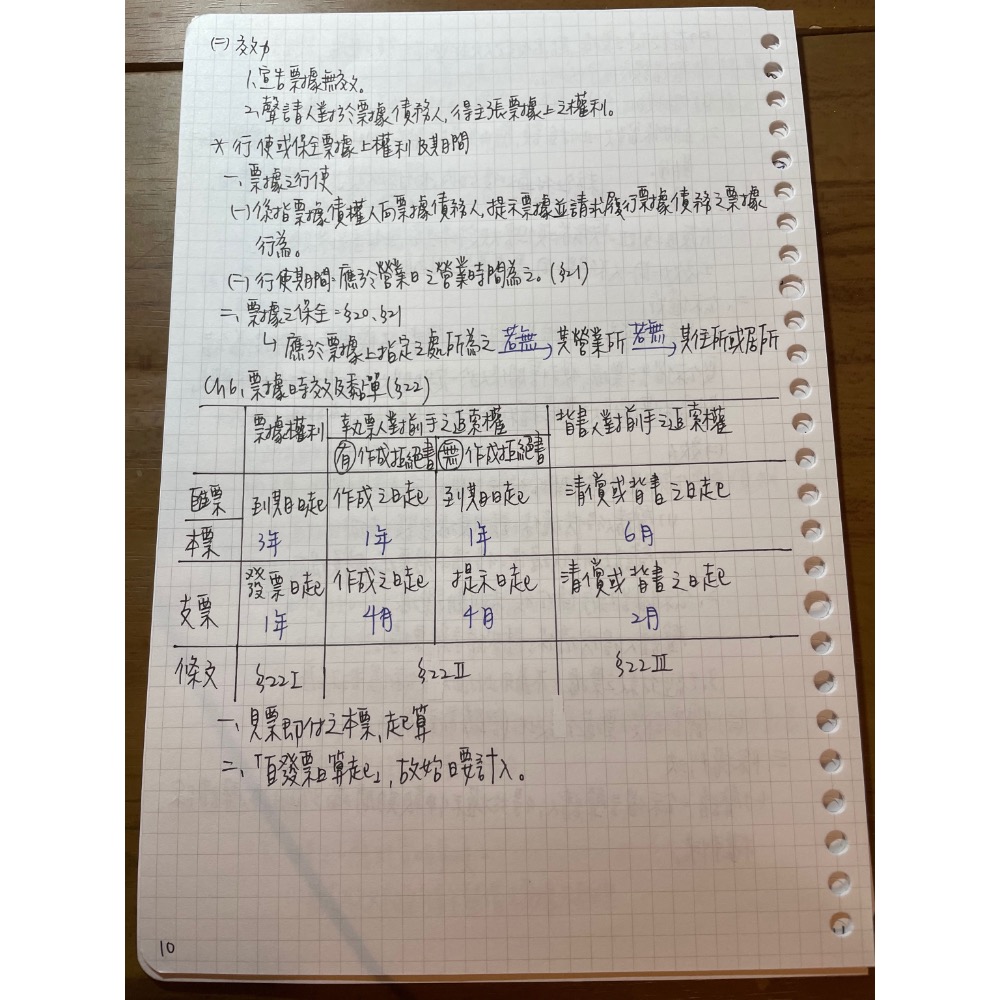 (二) 效力
1、宣告票據無效。
2、聲請人對於票據債務人，得主張票據上之權利。
* 行使或保全票據上權利及期間
一、票據之行使
(一) 係指票據債權人向票據債務人，提示票據並請求履行票據債務之票據
行為。
(二) 行使期間：應於營業日之營業時間為之。(§21)
二、票據之保全：§20、§21
↳ 應於票據上指定之處所為之 若無→ 其營業所 若無→ 其住所或居所
Ch6、票據時效及黏單(§22)
票據權利 執票人對前手之追索權 背書人對前手之追索權
有作成拒絕書 無作成拒絕書
匯票 到期日起 作成之日起 到期日起 清償或背書之日起
本票 3年 1年 1年 6月
發票日起 作成之日起 提示日起 清償或背書之日起
支票 1年 4月 4月 2月
條文 §22I §22II §22III
一、見票即付之本票，起算
二、「自發票日算起」，故始日要計入。
10